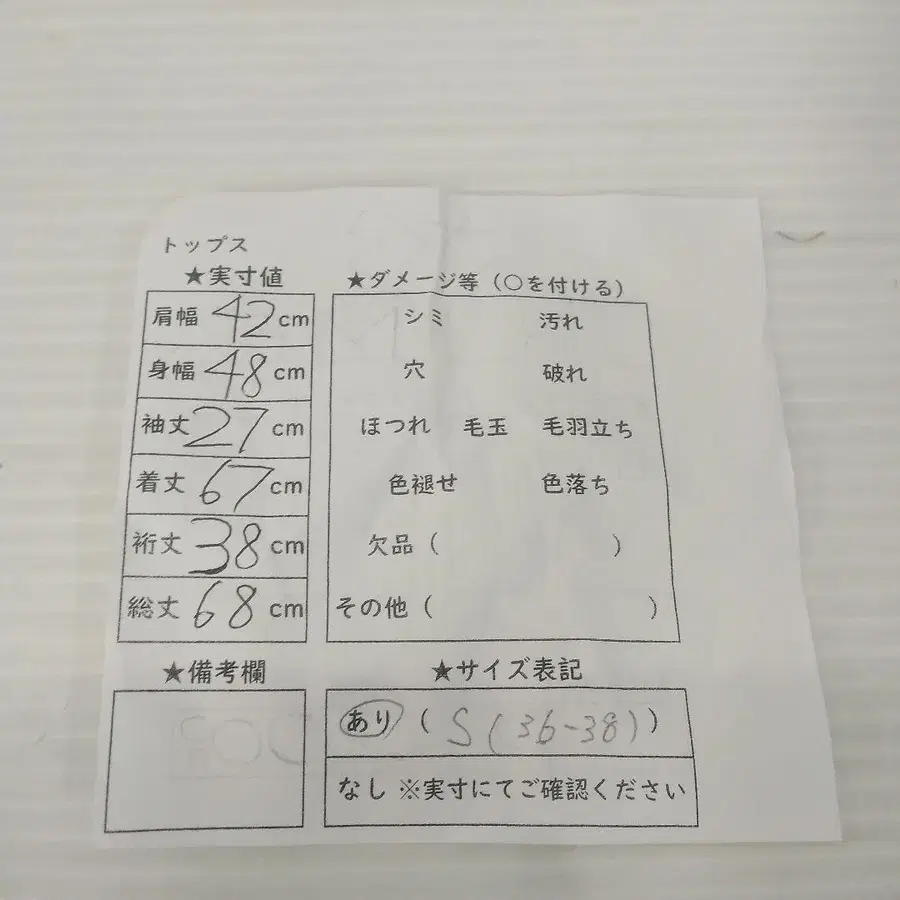 トップス
★実寸値
肩幅 42 cm
身幅 48 cm
袖丈 27 cm
着丈 67 cm
裄丈 38 cm
総丈 68 cm
★ダメージ等（○を付ける）
シミ 汚れ
穴 破れ
ほつれ 毛玉 毛羽立ち
色褪せ 色落ち
欠品（ ）
その他（ ）
★備考欄
★サイズ表記
あり （ S(36-38) ）
なし ※実寸にてご確認ください